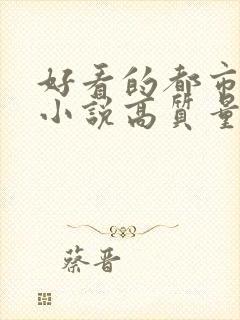 好看的都市
小說高質量
蔡晋